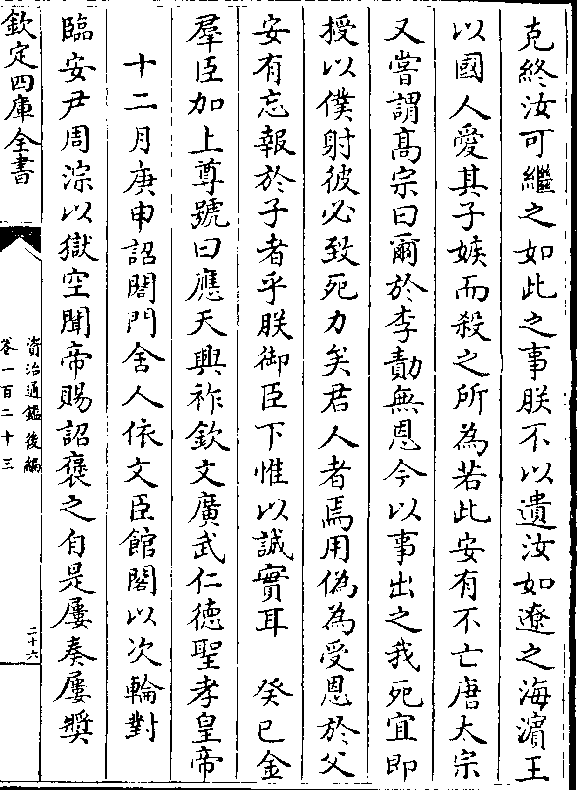 克終汝可繼之如此之事朕不以遺汝如遼之海濵王
以國人愛其子嫉而殺之所為若此安有不亡唐太宗
又嘗謂髙宗曰爾於李勣無恩今以事出之我死宜即
授以僕射彼必致死力矣君人者焉用偽為受恩於父
安有忘報於子者乎朕御臣下惟以誠實耳　癸巳金
羣臣加上尊號曰應天興祚欽文廣武仁徳聖孝皇帝
十二月庚申詔閤門舍人依文臣館閣以次輪對
臨安尹周淙以獄空聞帝賜詔褒之自是屢奏屢奬
欽定四庫全書
資治通鑑後編
卷一百二十三
二十六